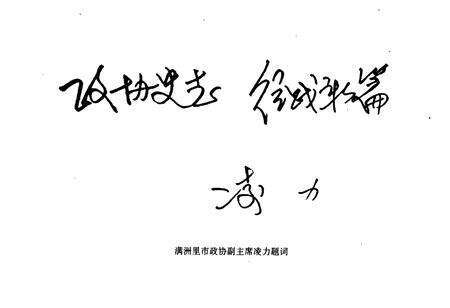 政协史志 篇
凌 力
满洲里市政协副主席凌力题词